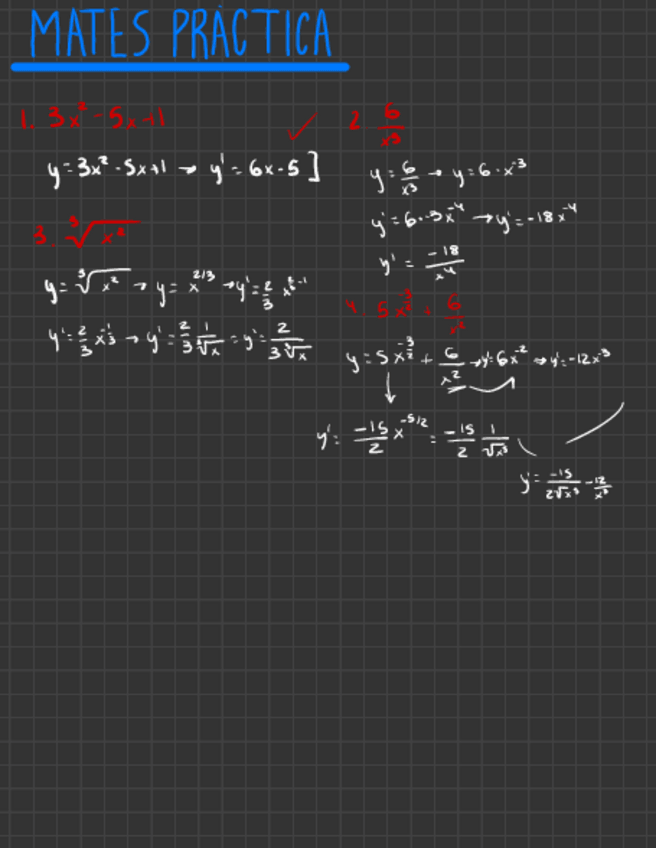 MATES PRÁCTICA
1. 3x² - 5x + 1 ✓
y = 3x² - 5x + 1 → y' = 6x - 5 ]
3. ∛x²
y = ∛x² → y = x^2/3 → y' = 2/3 x
y' = 2/3 x^-1/3 → y' = 2/3 1/∛x = y' = 2/3∛x
2 6/x³
y = 6/x³ → y = 6 · x^-3
y' = 6 · -3x^-4 → y' = -18x^-4
y' = -18/x⁴
4. 5x^-3/2 + 6/x²
y = 5x^-3/2 + 6/x² → y = 6x^-2 → y' = -12x^-3
y' = -15/2 x^-5/2 = -15/2 1/√x⁵
y' = -15/2√x⁵ - 12/x³